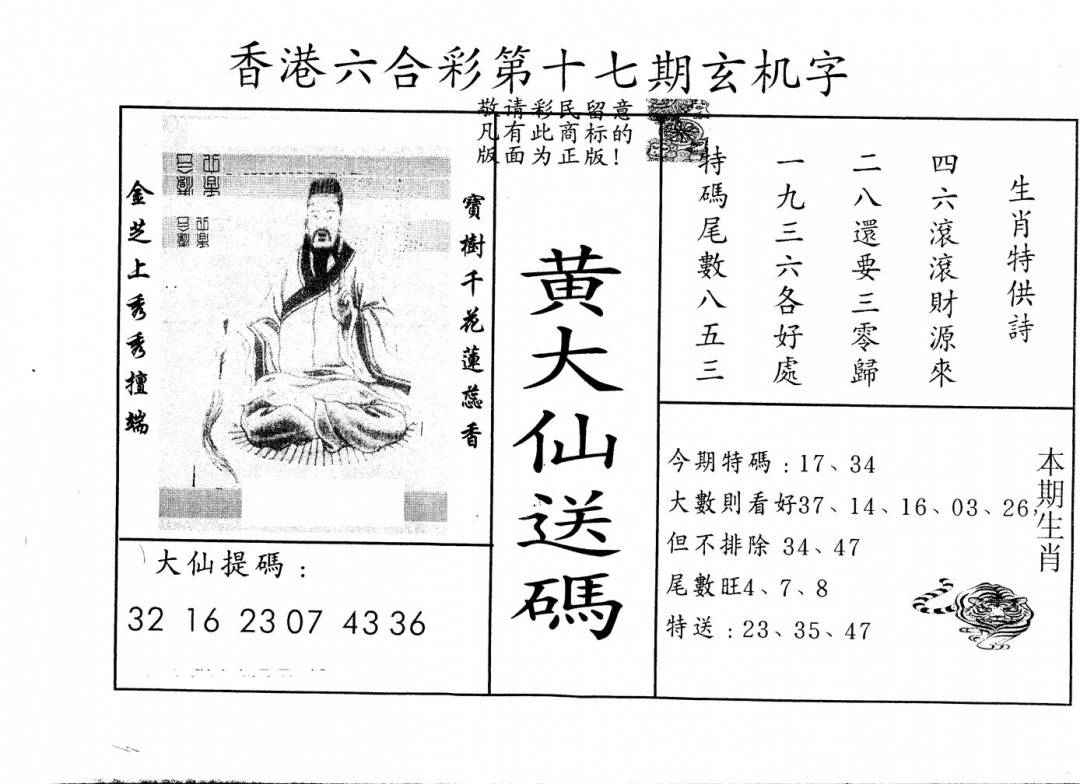 香港六合彩第十七期玄机字
敬请彩民留意
凡有此商标的
版面为正版!
金芝上秀秀擅端
寶樹千花蓮蕊香
大仙提碼:
32 16 23 07 43 36
黄大仙送碼
生肖特供詩
四六滾滾財源來
二八還要三零歸
一九三六各好處
特碼尾數八五三
今期特碼:17、34
大數則看好37、14、16、03、26,
但不排除 34、47
尾數旺4、7、8
特送:23、35、47
本期生肖